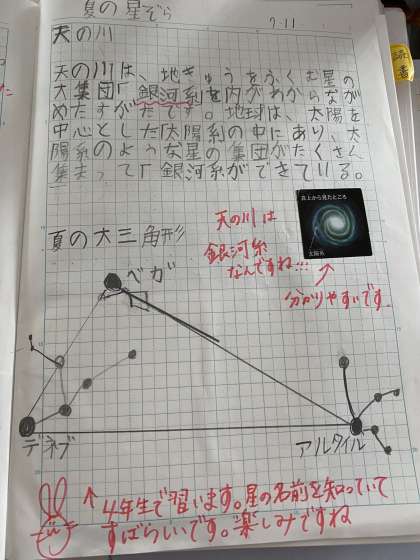 夏の星ぞら
7.11
天の川
天の川は、地きゅうをふくむ星の
大集団「銀河系」を内がわからなが
めたすがたです。地球は、太陽を
中心とした「太陽系」の中にあり、太
陽系のような星の集団がたくさん
集まって「銀河系ができている。
真上から見たところ
太陽系
天の川は
銀河系
なんですね!!!
分かりやすいです
夏の大三角形
ベガ
デネブ
アルタイル
↑4年生で習います。星の名前を知っていて
すばらいです。楽しみですね
読書